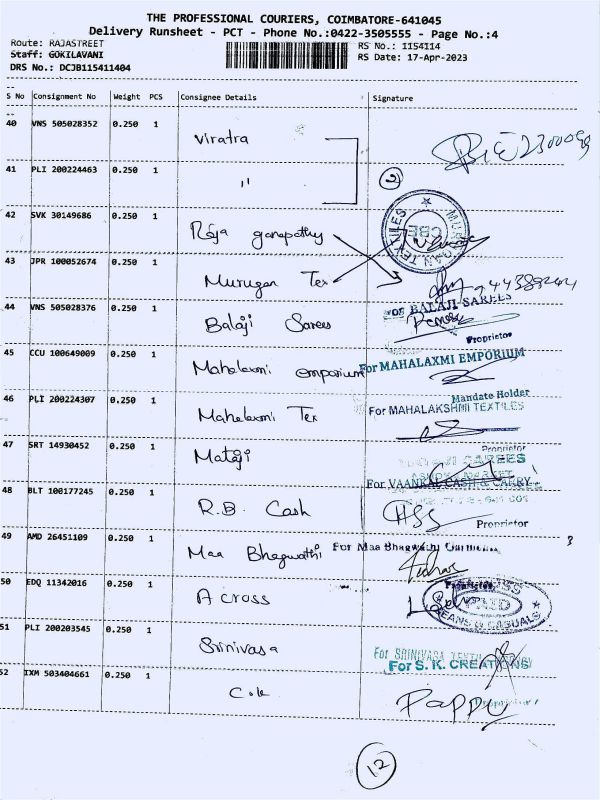 THE PROFESSIONAL COURIERS, COIMBATORE-641045
Delivery Runsheet - PCT - Phone No.:0422-3505555 - Page No.:4
Route: RAJASTREET
RS No.: 1154114
Staff: GOKILAVANI
RS Date: 17-Apr-2023
DRS No.: DCJB115411404
S No Consignment No Weight PCS Consignee Details Signature
40 VNS 505028352 0.250 1 Viratra
41 PLI 200224463 0.250 1 "
2
42 SVK 30149686 0.250 1 Raja ganapathy
MURUGAN TEXTILES CBE
43 JPR 100052674 0.250 1 Murugan Tex
44 VNS 505028376 0.250 1 Balaji Sarees
For BALAJI SAREES
Proprietor
45 CCU 100649009 0.250 1 Mahalaxmi emporium
For MAHALAXMI EMPORIUM
Mandate Holder
46 PLI 200224307 0.250 1 Mahalaxmi Tex
For MAHALAKSHMI TEXTILES
Proprietor
47 SRT 14930452 0.250 1 Mataji
SAREES
For VAANKAL CASH & CARRY
48 BLT 100177245 0.250 1 R.B. Cash
Proprietor
49 AMD 26451109 0.250 1 Maa Bhagwathi
For Maa Bhagwathi Garments
50 EDQ 11342016 0.250 1 Across
JEANS & CASUALS
51 PLI 200203545 0.250 1 Srinivasa
For SRINIVASA
For S. K. CREATIONS
52 IXM 503404661 0.250 1
Pappu
12